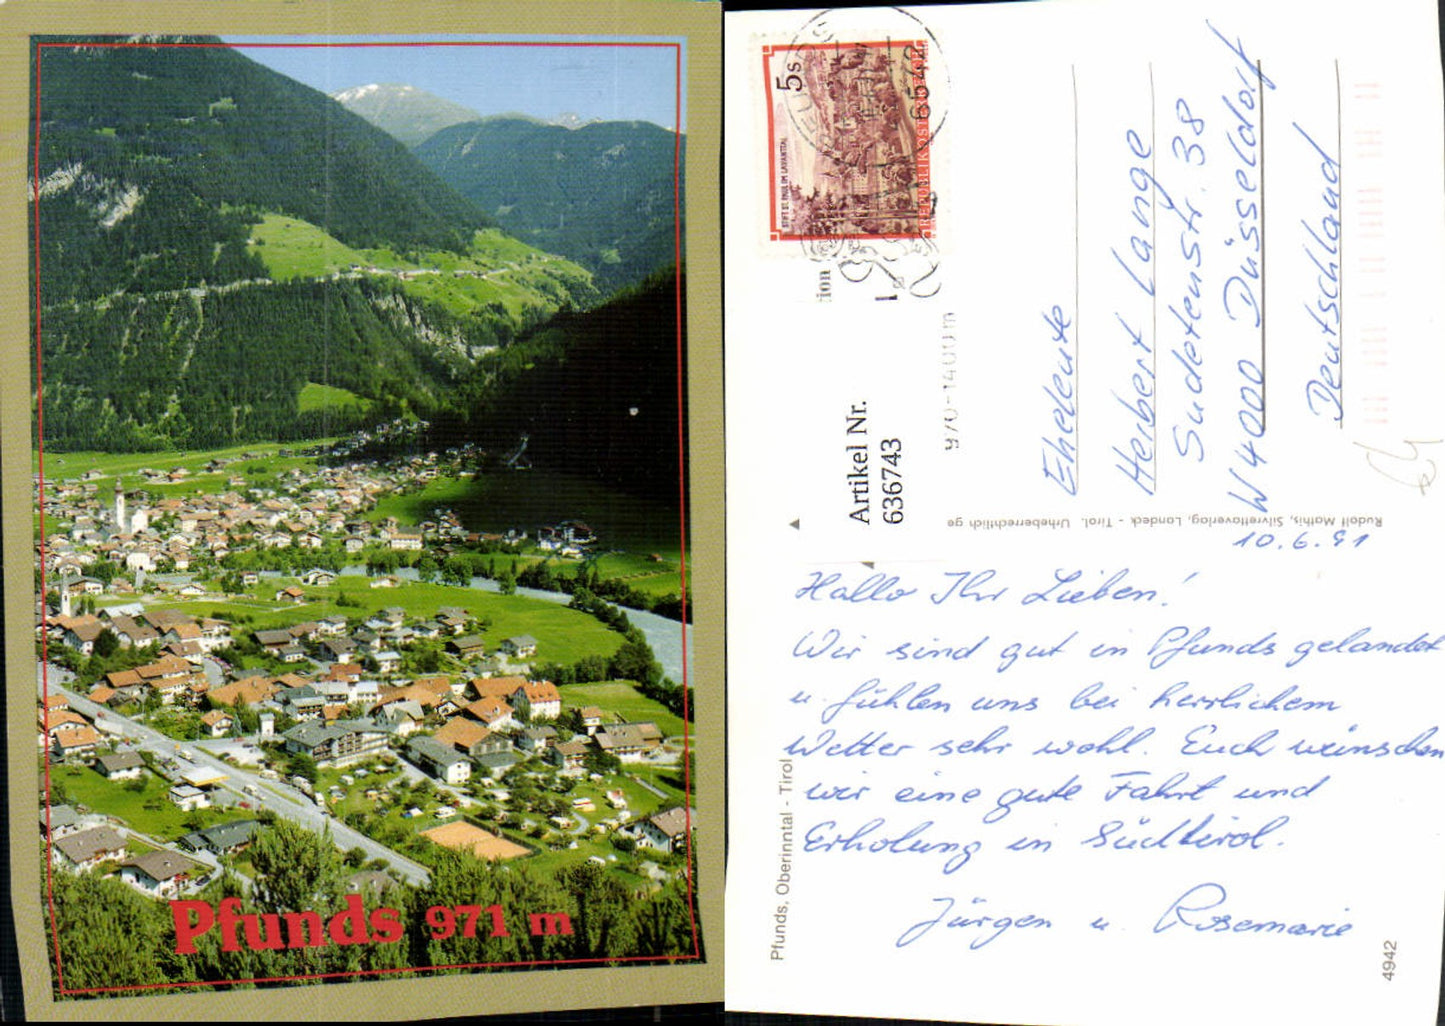 Pfunds 971 m
5 S
STIFT ST. PAUL IM LAVANTTAL
REPUBLIK ÖSTERREICH
6542
970-1400 m
Artikel Nr.
636743
Eheleute
Herbert Lange
Sudetenstr. 38
W 4000 Düsseldorf
Deutschland
Rudolf Mathis, Silvrettaverlag, Landeck - Tirol. Urheberrechtlich ge
10.6.91
Hallo Ihr Lieben!
Wir sind gut in Pfunds gelandet
u. fühlen uns bei herrlichem
Wetter sehr wohl. Euch wünschen
wir eine gute Fahrt und
Erholung in Südtirol.
Jürgen u. Rosemarie
Pfunds, Oberinntal - Tirol
4942